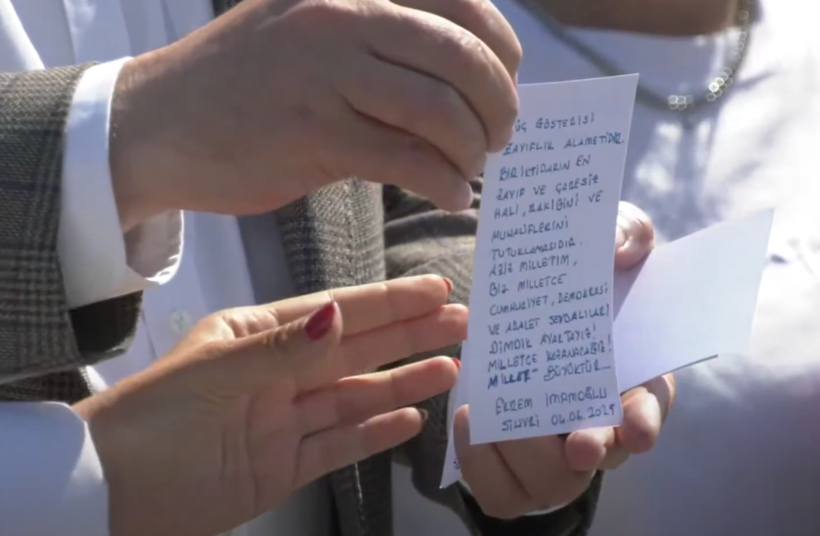 GÜÇ GÖSTERİSİ
ZAYIFLIK ALAMETİDİR.
BİR İKTİDARIN EN
ZAYIF VE ÇARESİZ
HALİ, RAKİBİNİ VE
MUHALİFLERİNİ
TUTUKLAMASIDIR.
AZİZ MİLLETİM,
BİZ MİLLETÇE
CUMHURİYET, DEMOKRASİ
VE ADALET SEVDALILARI
DİMDİK AYAKTAYIZ!
MİLLETÇE KAZANACAĞIZ!
MİLLET BÜYÜKTÜR...
EKREM İMAMOĞLU
SİLİVRİ 04.06.2025